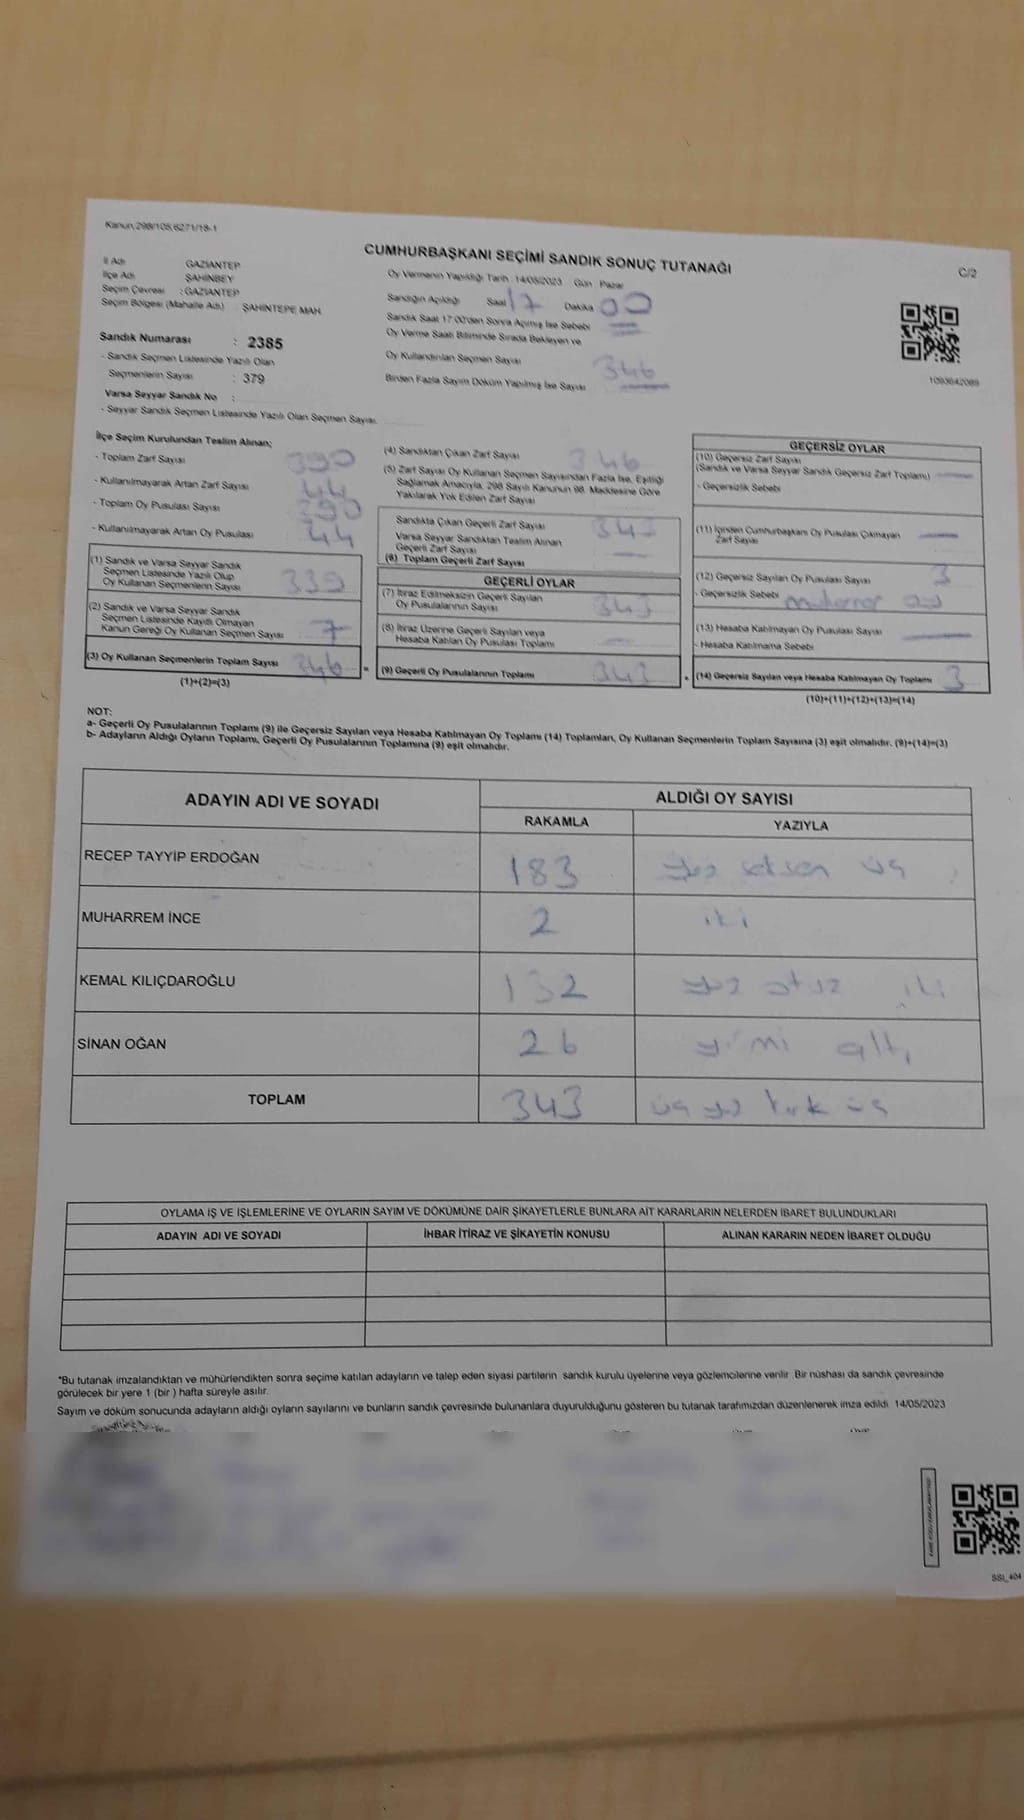 Kanun:298/105,6271/18-1
CUMHURBAŞKANI SEÇİMİ SANDIK SONUÇ TUTANAĞI
C/2
İl Adı GAZİANTEP
İlçe Adı ŞAHİNBEY
Seçim Çevresi : GAZİANTEP
Seçim Bölgesi (Mahalle Adı) ŞAHİNTEPE MAH.
Oy Vermenin Yapıldığı Tarih 14/05/2023 Gün Pazar
Sandığın Açıldığı Saat 17 Dakika 00
Sandık Saat 17:00'den Sonra Açılmış İse Sebebi
Oy Verme Saati Bitiminde Sırada Bekleyen ve
Oy Kullandırılan Seçmen Sayısı 346
Birden Fazla Sayım Döküm Yapılmış İse Sayısı
1093642089
Sandık Numarası : 2385
- Sandık Seçmen Listesinde Yazılı Olan
Seçmenlerin Sayısı : 379
Varsa Seyyar Sandık No :
- Seyyar Sandık Seçmen Listesinde Yazılı Olan Seçmen Sayısı
İlçe Seçim Kurulundan Teslim Alınan;
- Toplam Zarf Sayısı 390
- Kullanılmayarak Artan Zarf Sayısı 44
- Toplam Oy Pusulası Sayısı 390
- Kullanılmayarak Artan Oy Pusulası 44
(1) Sandık ve Varsa Seyyar Sandık
Seçmen Listesinde Yazılı Olup
Oy Kullanan Seçmenlerin Sayısı 339
(2) Sandık ve Varsa Seyyar Sandık
Seçmen Listesinde Kayıtlı Olmayan
Kanun Gereği Oy Kullanan Seçmen Sayısı 7
(3) Oy Kullanan Seçmenlerin Toplam Sayısı 346 =
(1)+(2)=(3)
(4) Sandıktan Çıkan Zarf Sayısı 346
(5) Zarf Sayısı Oy Kullanan Seçmen Sayısından Fazla İse, Eşitliği
Sağlamak Amacıyla, 298 Sayılı Kanunun 98. Maddesine Göre
Yakılarak Yok Edilen Zarf Sayısı
Sandıkta Çıkan Geçerli Zarf Sayısı 343
Varsa Seyyar Sandıktan Teslim Alınan
Geçerli Zarf Sayısı
(6) Toplam Geçerli Zarf Sayısı
GEÇERLİ OYLAR
(7) İtiraz Edilmeksizin Geçerli Sayılan
Oy Pusulalarının Sayısı 343
(8) İtiraz Üzerine Geçerli Sayılan veya
Hesaba Katılan Oy Pusulası Toplamı
(9) Geçerli Oy Pusulalarının Toplamı 343 +
GEÇERSİZ OYLAR
(10) Geçersiz Zarf Sayısı
(Sandık ve Varsa Seyyar Sandık Geçersiz Zarf Toplamı)
- Geçersizlik Sebebi
(11) İçinden Cumhurbaşkanı Oy Pusulası Çıkmayan
Zarf Sayısı
(12) Geçersiz Sayılan Oy Pusulası Sayısı 3
- Geçersizlik Sebebi
(13) Hesaba Katılmayan Oy Pusulası Sayısı
- Hesaba Katılmama Sebebi
(14) Geçersiz Sayılan veya Hesaba Katılmayan Oy Toplamı 3
(10)+(11)+(12)+(13)=(14)
NOT:
a- Geçerli Oy Pusulalarının Toplamı (9) ile Geçersiz Sayılan veya Hesaba Katılmayan Oy Toplamı (14) Toplamları, Oy Kullanan Seçmenlerin Toplam Sayısına (3) eşit olmalıdır. (9)+(14)=(3)
b- Adayların Aldığı Oyların Toplamı, Geçerli Oy Pusulalarının Toplamına (9) eşit olmalıdır.
ADAYIN ADI VE SOYADI ALDIĞI OY SAYISI
RAKAMLA YAZIYLA
RECEP TAYYİP ERDOĞAN 183 yüz seksen üç
MUHARREM İNCE 2 iki
KEMAL KILIÇDAROĞLU 132 yüz otuz iki
SİNAN OĞAN 26 yirmi altı
TOPLAM 343 üç yüz kırk üç
OYLAMA İŞ VE İŞLEMLERİNE VE OYLARIN SAYIM VE DÖKÜMÜNE DAİR ŞİKAYETLERLE BUNLARA AİT KARARLARIN NELERDEN İBARET BULUNDUKLARI
ADAYIN ADI VE SOYADI İHBAR İTİRAZ VE ŞİKAYETİN KONUSU ALINAN KARARIN NEDEN İBARET OLDUĞU
*Bu tutanak imzalandıktan ve mühürlendikten sonra seçime katılan adayların ve talep eden siyasi partilerin sandık kurulu üyelerine veya gözlemcilerine verilir. Bir nüshası da sandık çevresinde
görülecek bir yere 1 (bir ) hafta süreyle asılır.
Sayım ve döküm sonucunda adayların aldığı oyların sayılarını ve bunların sandık çevresinde bulunanlara duyurulduğunu gösteren bu tutanak tarafımızdan düzenlenerek imza edildi. 14/05/2023
SSI_404